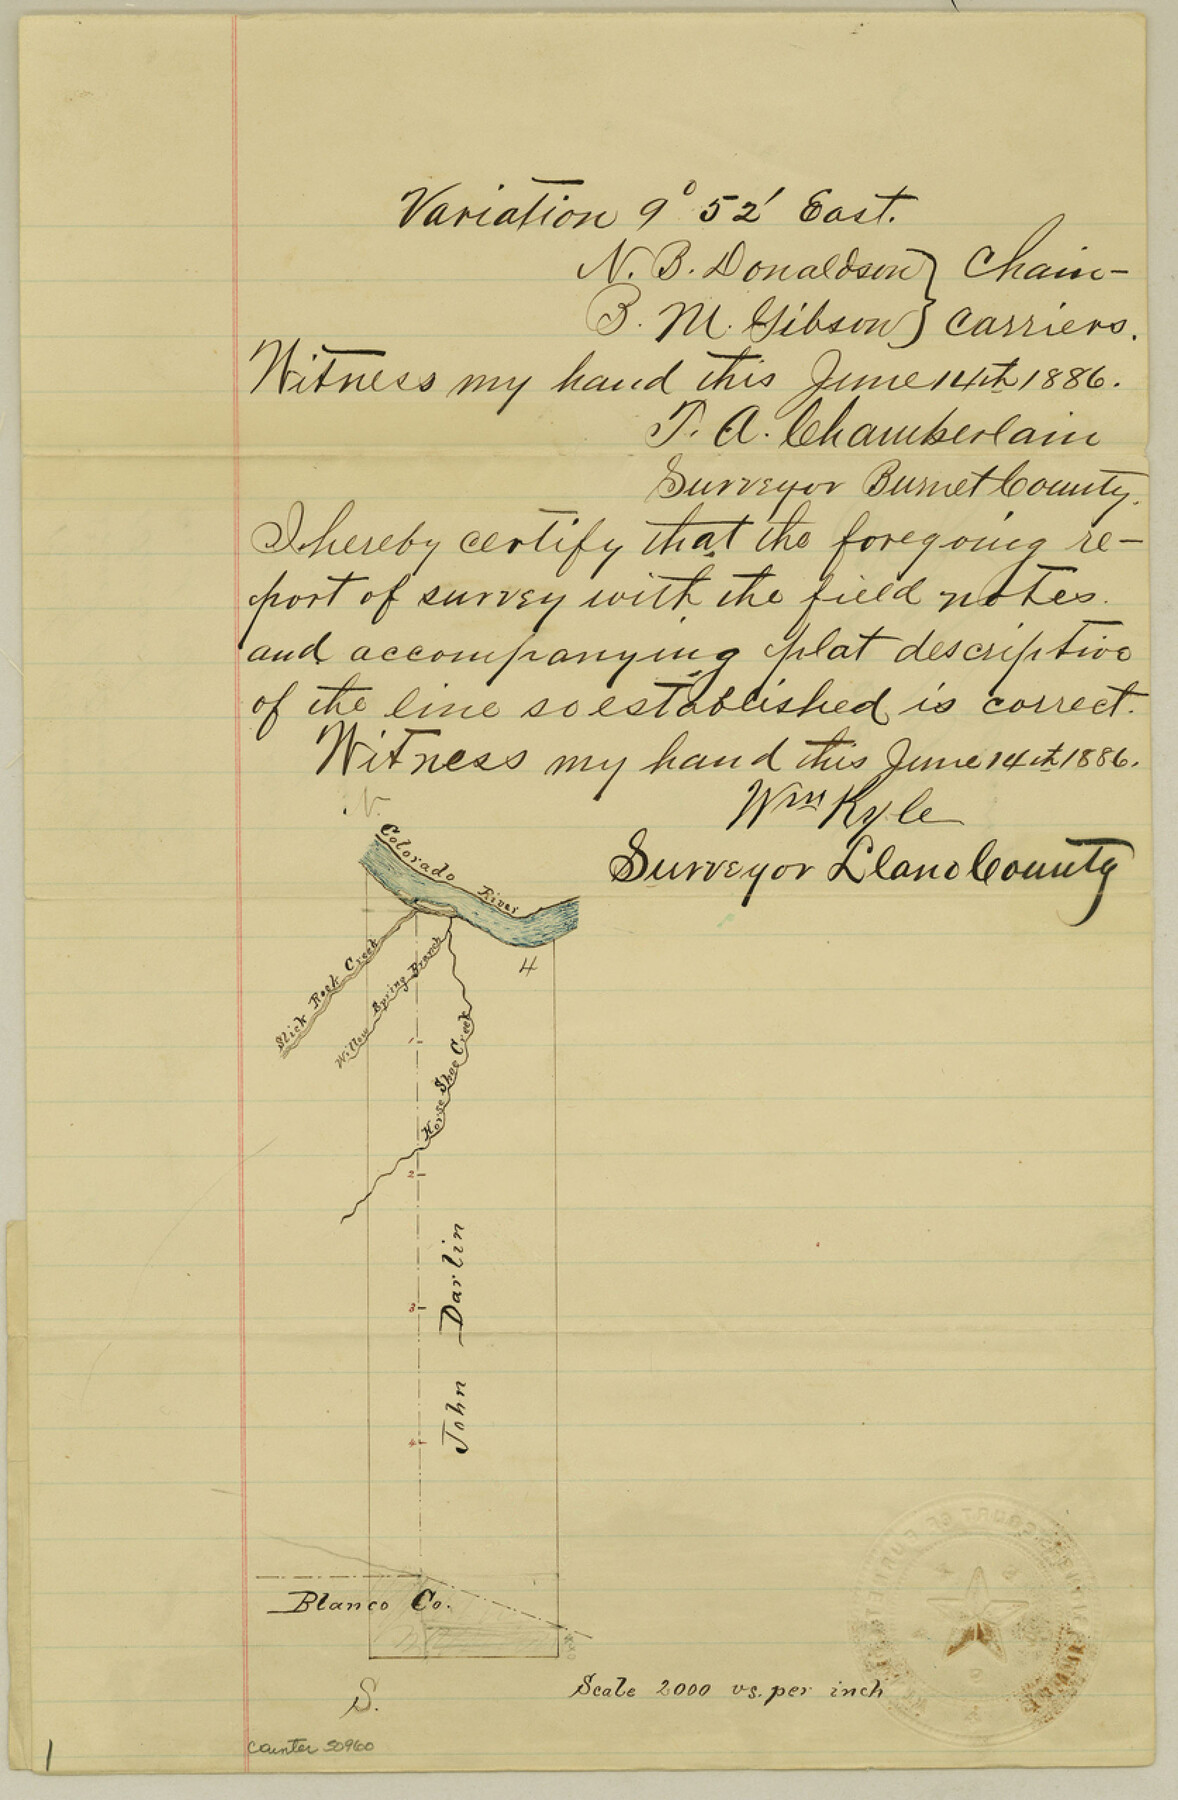 Variation 9° 52' East.
N. B. Donaldson } Chain-
B. M. Gibson } carriers.
Witness my hand this June 14th 1886.
T. A. Chamberlain
Surveyor Burnet County.
I hereby certify that the foregoing re-
port of survey with the field notes
and accompanying plat descriptive
of the line so established is correct.
Witness my hand this June 14th 1886.
Wm Kyle
Surveyor Llano County
N.
Colorado River
Slick Rock Creek
Willow Spring Branch
4
Horse Shoe Creek
1
2
3
4
John Darlin
Blanco Co.
S.
Scale 2000 vs. per inch
counter 50960
1